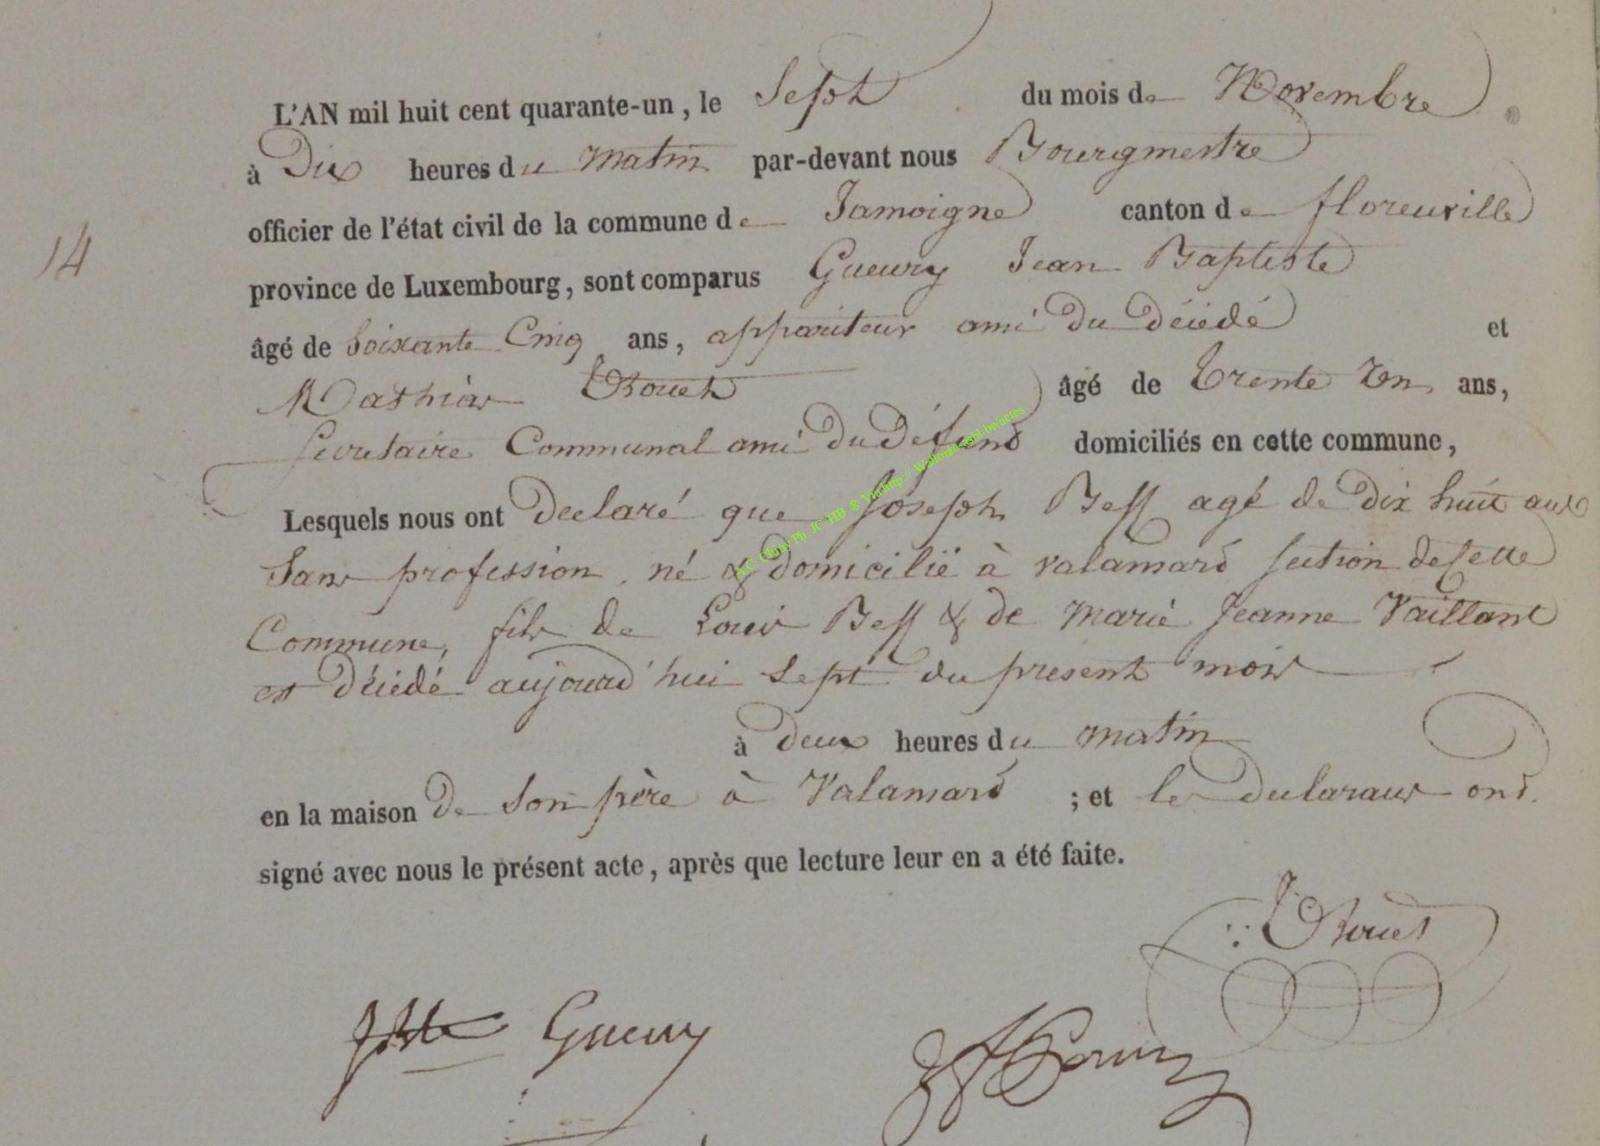 L'AN mil huit cent quarante-un, le Sept du mois de Novembre
à Dix heures du matin par-devant nous Bourgmestre
officier de l'état civil de la commune de Jamoigne canton de floreuville
14
province de Luxembourg, sont comparus Gueury Jean Baptiste
âgé de Soixante Cinq ans, appariteur ami du décédé et
Mathias âgé de trente un ans,
Secretaire Communal ami du défunt domiciliés en cette commune,
Lesquels nous ont declaré que Joseph Bess agé de dix huit ans
Sans profession, né & domicilié à valansard section de Cette
Commune, fils de Louis Bess & de marie Jeanne Vaillant
est décédé aujourd'hui Sept du présent mois
à deux heures du matin
en la maison de son père à Valansard ; et les declarans ont
signé avec nous le présent acte, après que lecture leur en a été faite.
Gueury